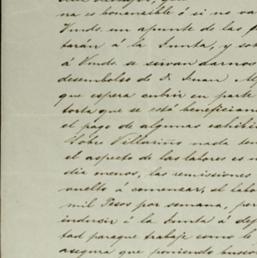 na es honorable ó si no va
Vmds un apunte de las
tarán á la Junta, y sob
á Vmds se sirvan darnos
desembolso de D. Juan
que espera cubrir en parte
torta que se está beneficiand
el pago de algunas exhibic
Sobre Villarino nada ten
el aspecto de las labores es
dia menos, las remisiones
vuelto á comenzar, el labo
mil Pesos por semana, per
inducir á la Junta á
tad paraque trabaje como
asegura que poniendo